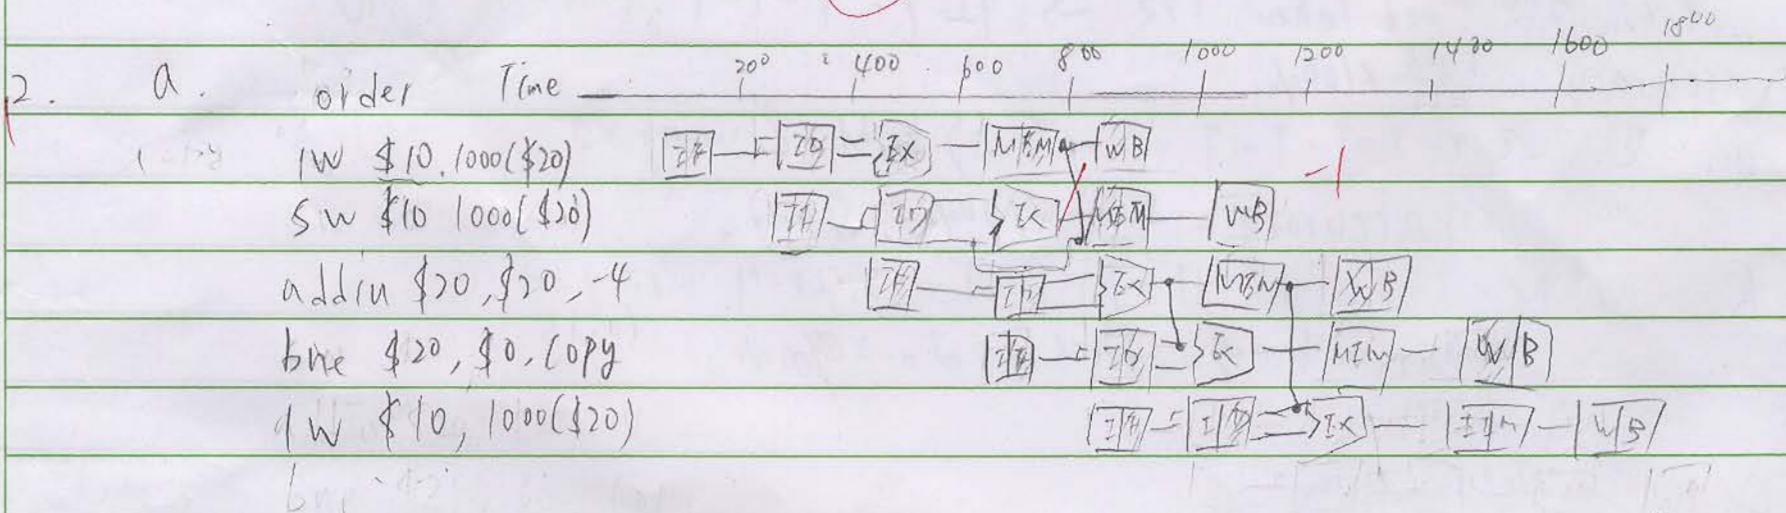 2. a. order Time 200 400 600 800 1000 1200 1400 1600 1800
lw $10, 1000($20) IF ID EX MEM WB -1
sw $10 1000($20) IF ID EX MEM WB
addiu $20, $20, -4 IF ID EX MEM WB
bne $20, $0, Copy IF ID EX MEM WB
lw $10, 1000($20) IF ID EX WB
bne